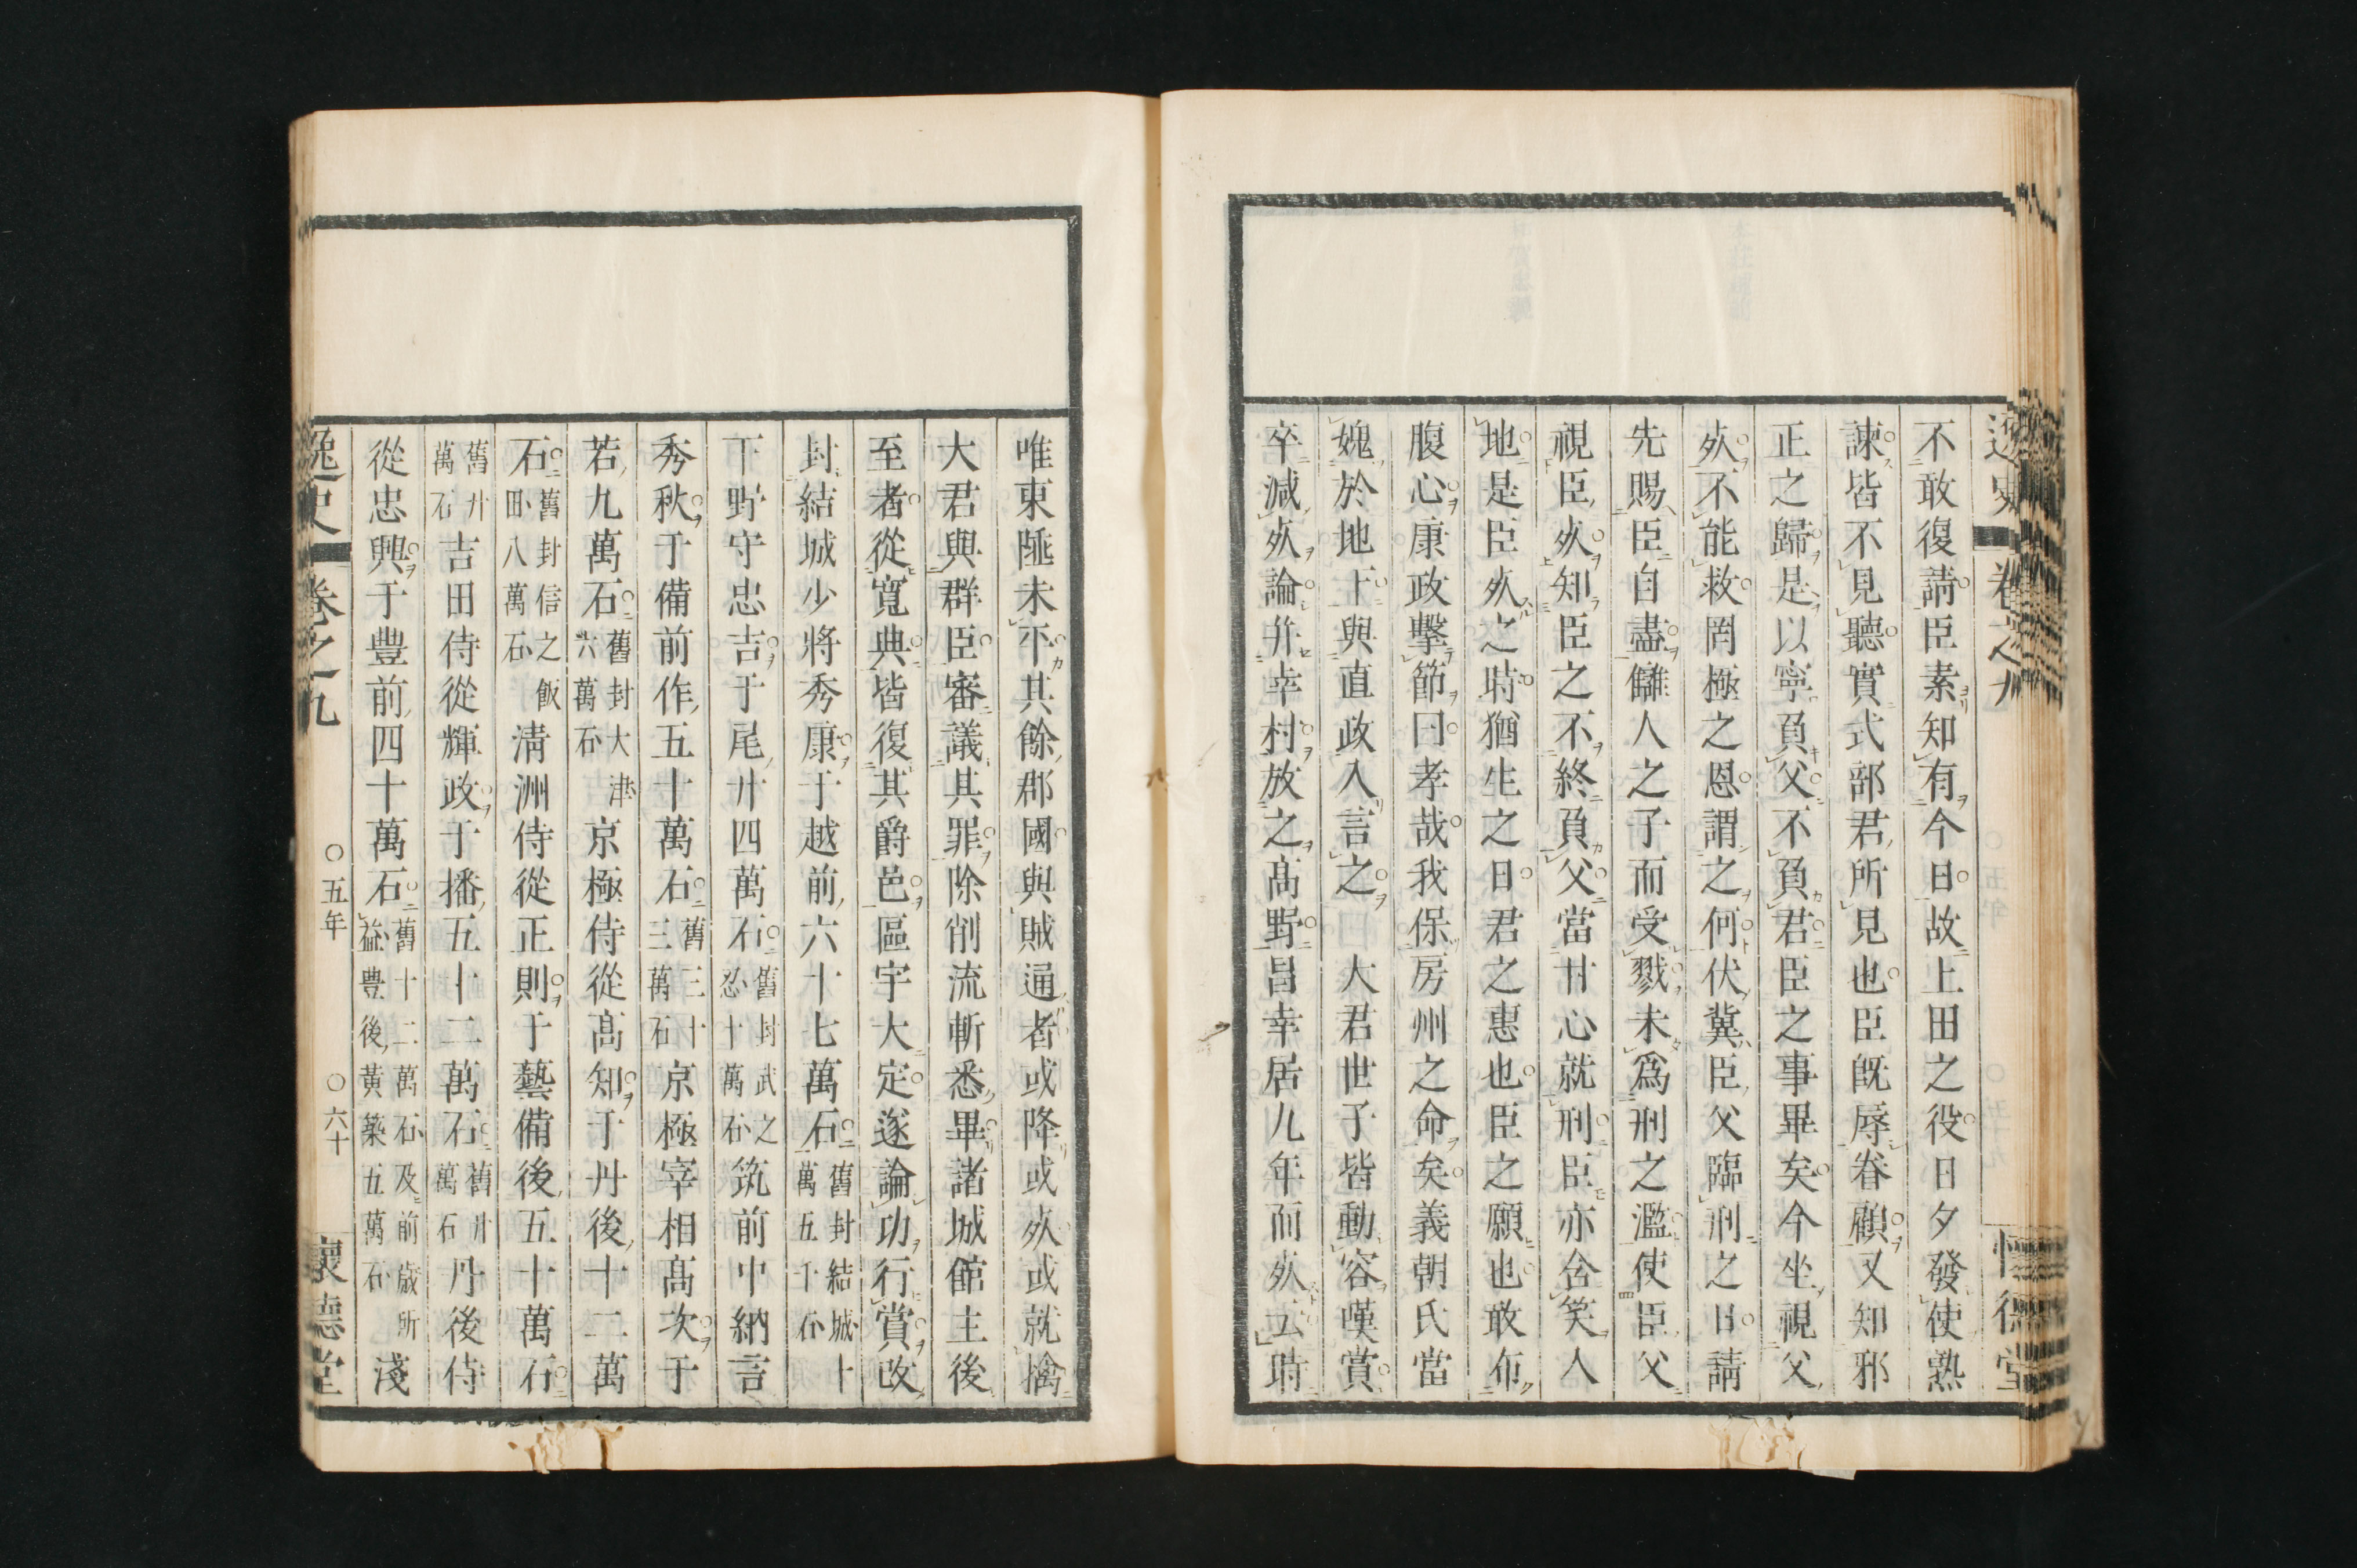 逸史 卷之九 懷德堂
不敢復請臣素知有今日故上田之役日夕發使熟
諫皆不見聽實式部君所見也臣既辱眷顧又知邪
正之歸是以寧負父不負君臣之事畢矣今坐視父
㱙不能救罔極之恩謂之何伏冀臣父臨刑之日請
先賜臣自盡讎人之子而受戮未爲刑之濫使臣父
視臣㱙知臣之不終負父當甘心就刑臣亦含笑入
地是臣㱙之時猶生之日君之惠也臣之願也敢布
腹心康政擊節曰孝哉我保房州之命矣義朝氏當
媿於地下與直政入言之大君世子皆動容嘆賞
卒減㱙論并幸村放之高野昌幸居九年而㱙云時
唯東陲未平其餘郡國與賊通者或降或㱙或就擒
大君與群臣審議其罪除削流斬悉畢諸城館主後
至者從寬典皆復其爵邑區宇大定遂論功行賞改
封結城少將秀康于越前六十七萬石舊封結城十萬五千石
下野守忠吉于尾廾四萬石舊封武之忍十萬石筑前中納言
秀秋于備前作五十萬石舊三十三萬石京極宰相高次于
若九萬石舊封大津六萬石京極侍從高知于丹後十二萬
石舊封信之飯田八萬石淸洲侍從正則于藝備後五十萬石
舊廾萬石吉田侍從輝政于播五十二萬石舊廾萬石丹後侍
從忠興于豐前四十萬石舊十二萬石及前歲所益豐後黃築五萬石淺
逸史 卷之九 ○五年 ○六十 懷德堂